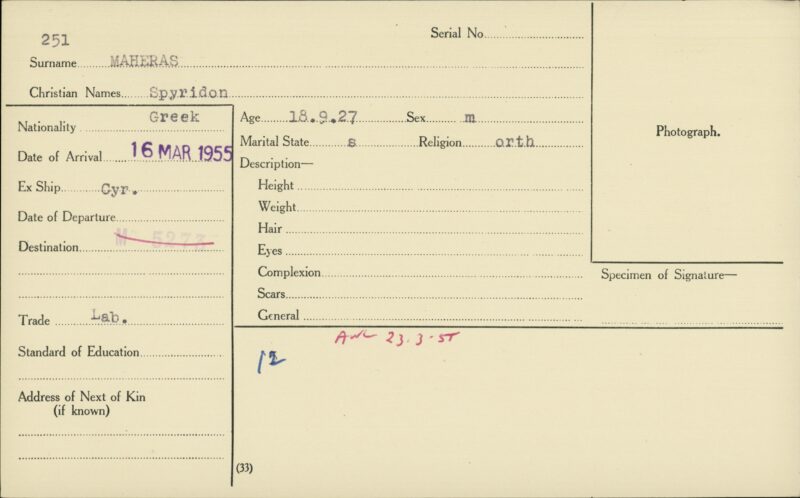 251
Serial No.
Surname MAHERAS
Christian Names Spyridon
Nationality Greek
Date of Arrival 16 MAR 1955
Ex Ship Cyr.
Date of Departure
Destination M 5273
Trade Lab.
Standard of Education
Address of Next of Kin
(if known)
Age 18.9.27 Sex m
Marital State s Religion orth
Description—
Height
Weight
Hair
Eyes
Complexion
Scars
General
Photograph.
Specimen of Signature—
AWL 23.3.55
12
(33)